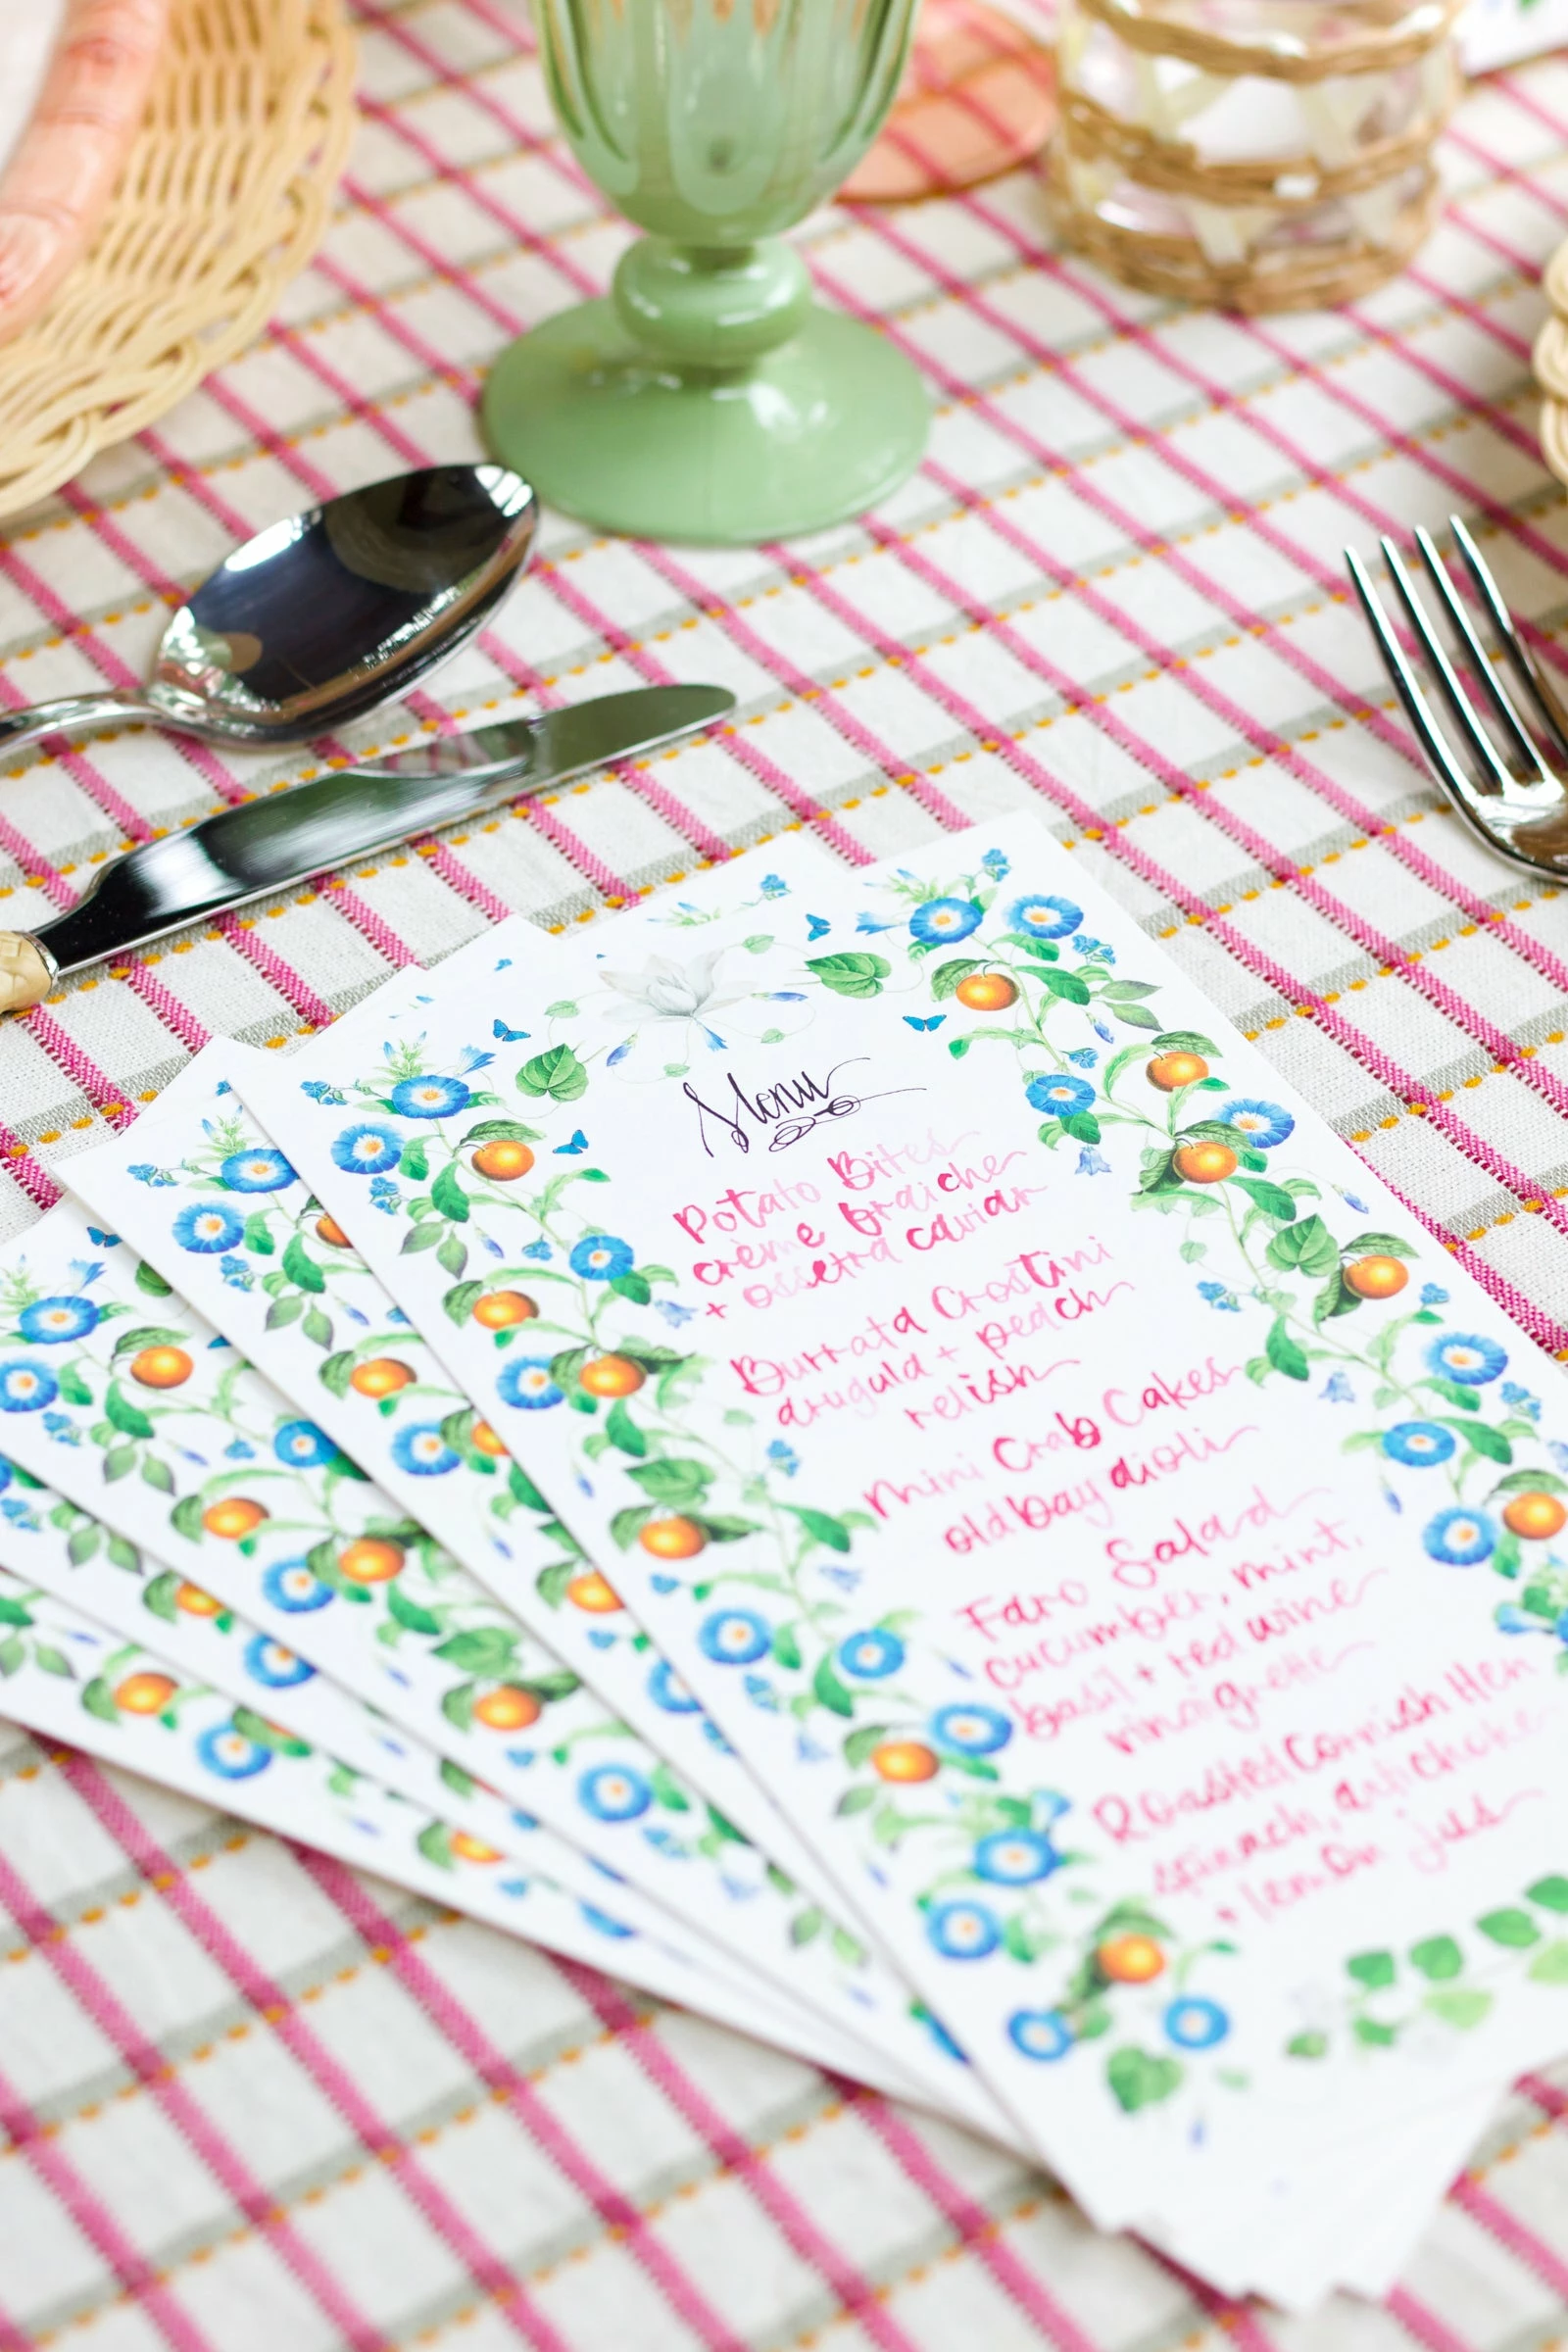 Menu
Potato Bites
crème fraîche
+ ossetra caviar
Burrata Crostini
arugula + peach
relish
Mini Crab Cakes
old bay aioli
Faro Salad
cucumber, mint,
basil + red wine
vinaigrette
Roasted Cornish Hen
spinach, artichoke
+ lemon jus